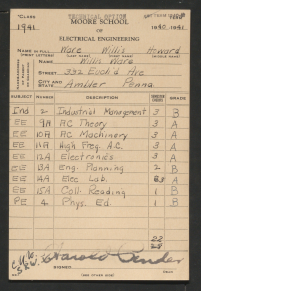 CLASS TECHNICAL OPTION
1941 MOORE SCHOOL 1940-1941
OF
ELECTRICAL ENGINEERING
NAME IN FULL Ware Willis Howard
(PRINT LETTERS) (LAST NAME) (FIRST NAME) (MIDDLE NAME)
Willis Ware
STREET 332 Euclid Ave
CITY AND STATE Ambler Penna
SUBJECT NUMBER DESCRIPTION GRADE
Ind 2 Industrial Management 3 B
EE 9A AC Theory 3 A
EE 10A AC Machinery 3 A
EE 11A High Freq. A.C. 3 A
EE 12A Electronics 3 A
EE 13A Eng. Planning 2 B
EE 14A Elec Lab. A
EE 15A Coll. Reading 1 B
PE 4 Phys. Ed 1 B
Harold Pender
SIGNED
(SEE OTHER SIDE)